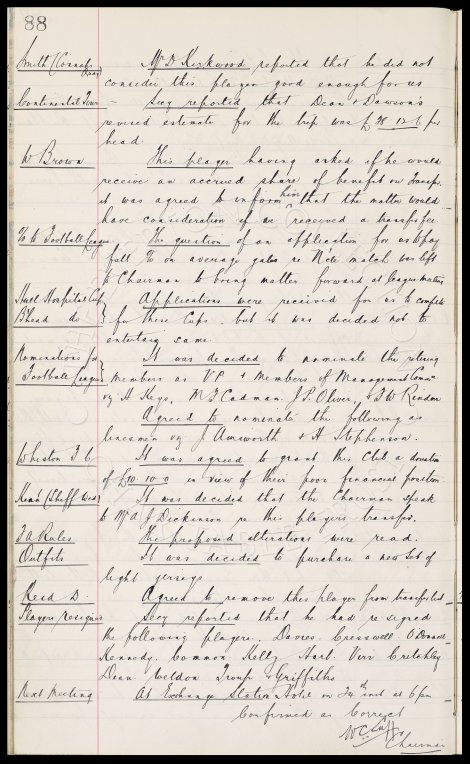 88
Smith (Connahs Quay) Mr D. Kirkwood reported that he did not
consider this player good enough for us
Continental Tour – Secy reported that Dean & Dawson's
revised estimate for the trip was per
head.
W Brown This player having asked if he would
receive an accrued share of benefit on transfer
it was agreed to inform him that the matter would
have consideration if we received a transfer fee.
% to Football League The question of an application for us to pay
full % on average gates re N'cle match was left
to Chairman to bring matter forward at league meeting
Hull Hospital Cup Applications were received for us to compete
B'head do for these Cups, but it was decided not to
entertain same.
Nominations for It was decided to nominate the retiring
Football League members as V.P. & members of Management Comm
vz H Keys, M F Cadman, J.P. Oliver, & T W
Agreed to nominate the following as
linesmen vz J Ainsworth & H Stephenson.
Whiston F C It was agreed to grant this Club a donation
of £10.10.0 in view of their poor financial position
(Sheff Wed) It was decided that the Chairman speak
to Mr A J Dickinson re this players transfer.
F A Rules The proposed alterations were read.
Outfits It was decided to purchase a new set of
light jerseys
Reid D. Agreed to remove this player from transfer list
Players resigned Secy reported that he had re-signed
the following players. Davies. Cresswell. O'Donnell
Kennedy. Common. Kelly. Hart. Virr. Critchley
Dean. Weldon. Troup & Griffiths
Next Meeting At Exchange Station Hotel on inst at 6 pm
Confirmed as Correct
W C Cuff
Chairman